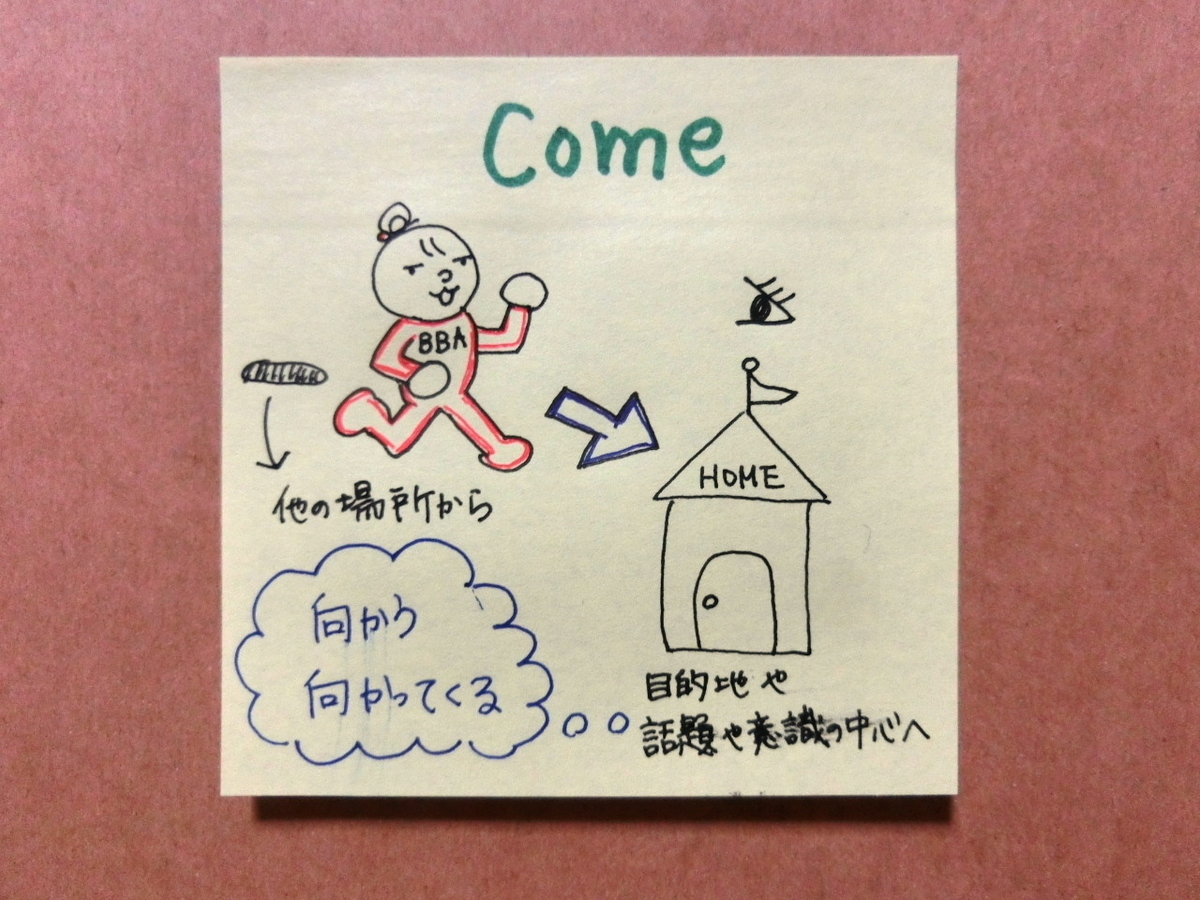 Come
BBA
HOME
他の場所から
向かう
向かってくる
目的地や
話題や意識の中心へ